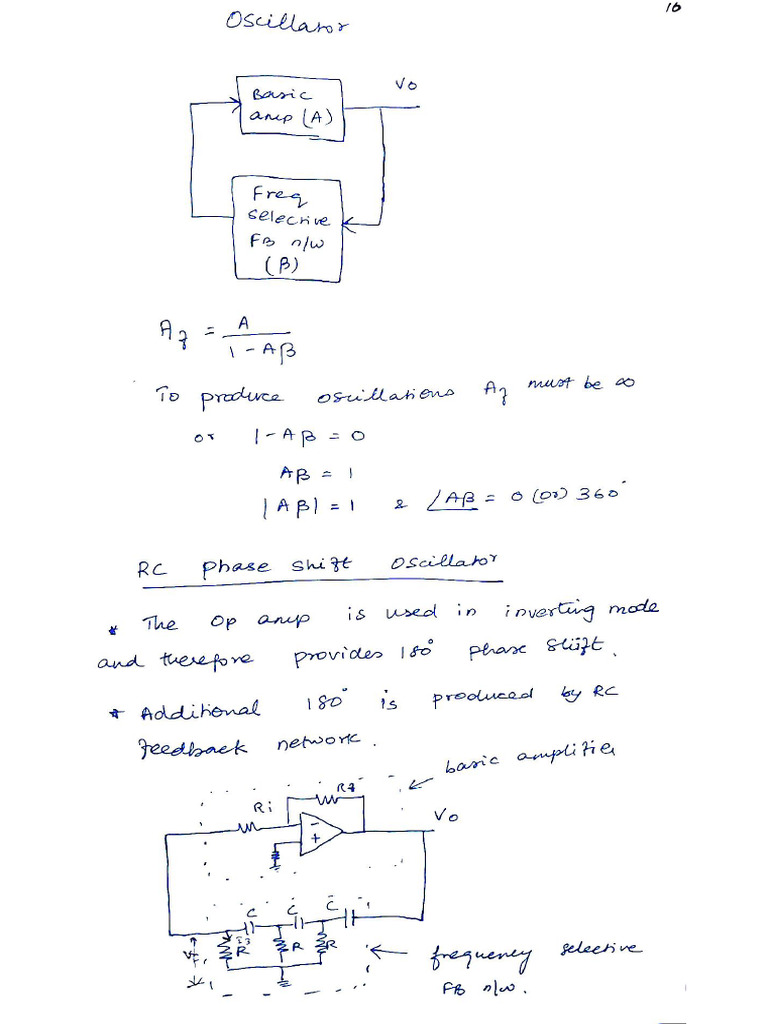 16
Oscillator
Basic
amp (A)
Vo
Freq
selective
FB n/w
(β)
Af = A / 1 - Aβ
To produce oscillations Af must be ∞
or 1 - Aβ = 0
Aβ = 1
|Aβ| = 1 & ∠Aβ = 0 (or) 360°
RC Phase shift Oscillator
* The Op amp is used in inverting mode
and therefore provides 180° phase shift.
* Additional 180° is produced by RC
feedback network.
basic amplifier
Rf
Ri
-
+
Vo
C C C
I3
R R R
Vf
frequency selective
FB n/w.